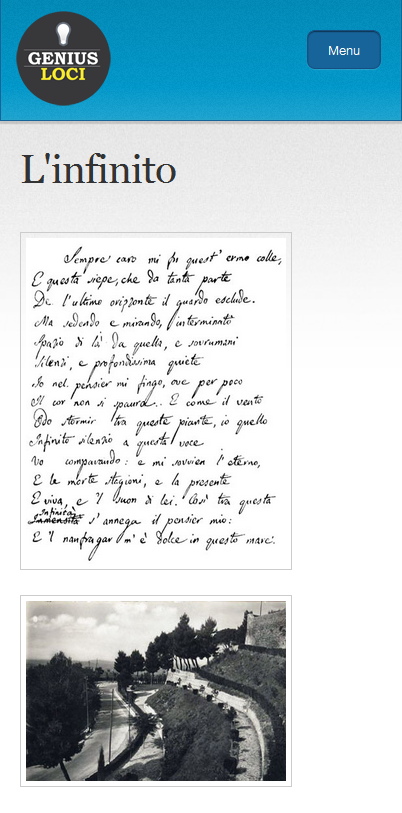 GENIUS
LOCI
Menu
L'infinito
Sempre caro mi fu quest' ermo colle,
E questa siepe, che da tanta parte
De l'ultimo orizzonte il guardo esclude.
Ma sedendo e mirando, interminato
Spazio di là da quella, e sovrumani
Silenzi, e profondissima quiete
Io nel pensier mi fingo, ove per poco
Il cor non si spaura.. E come il vento
Odo stormir tra queste piante, io quello
Infinito silenzio a questa voce
Vo comparando: e mi sovvien l'eterno,
E le morte stagioni, e la presente
E viva, e 'l suon di lei. Così tra questa
Infinità
Immensità s'annega il pensier mio:
E 'l naufragar m'è dolce in questo mare.